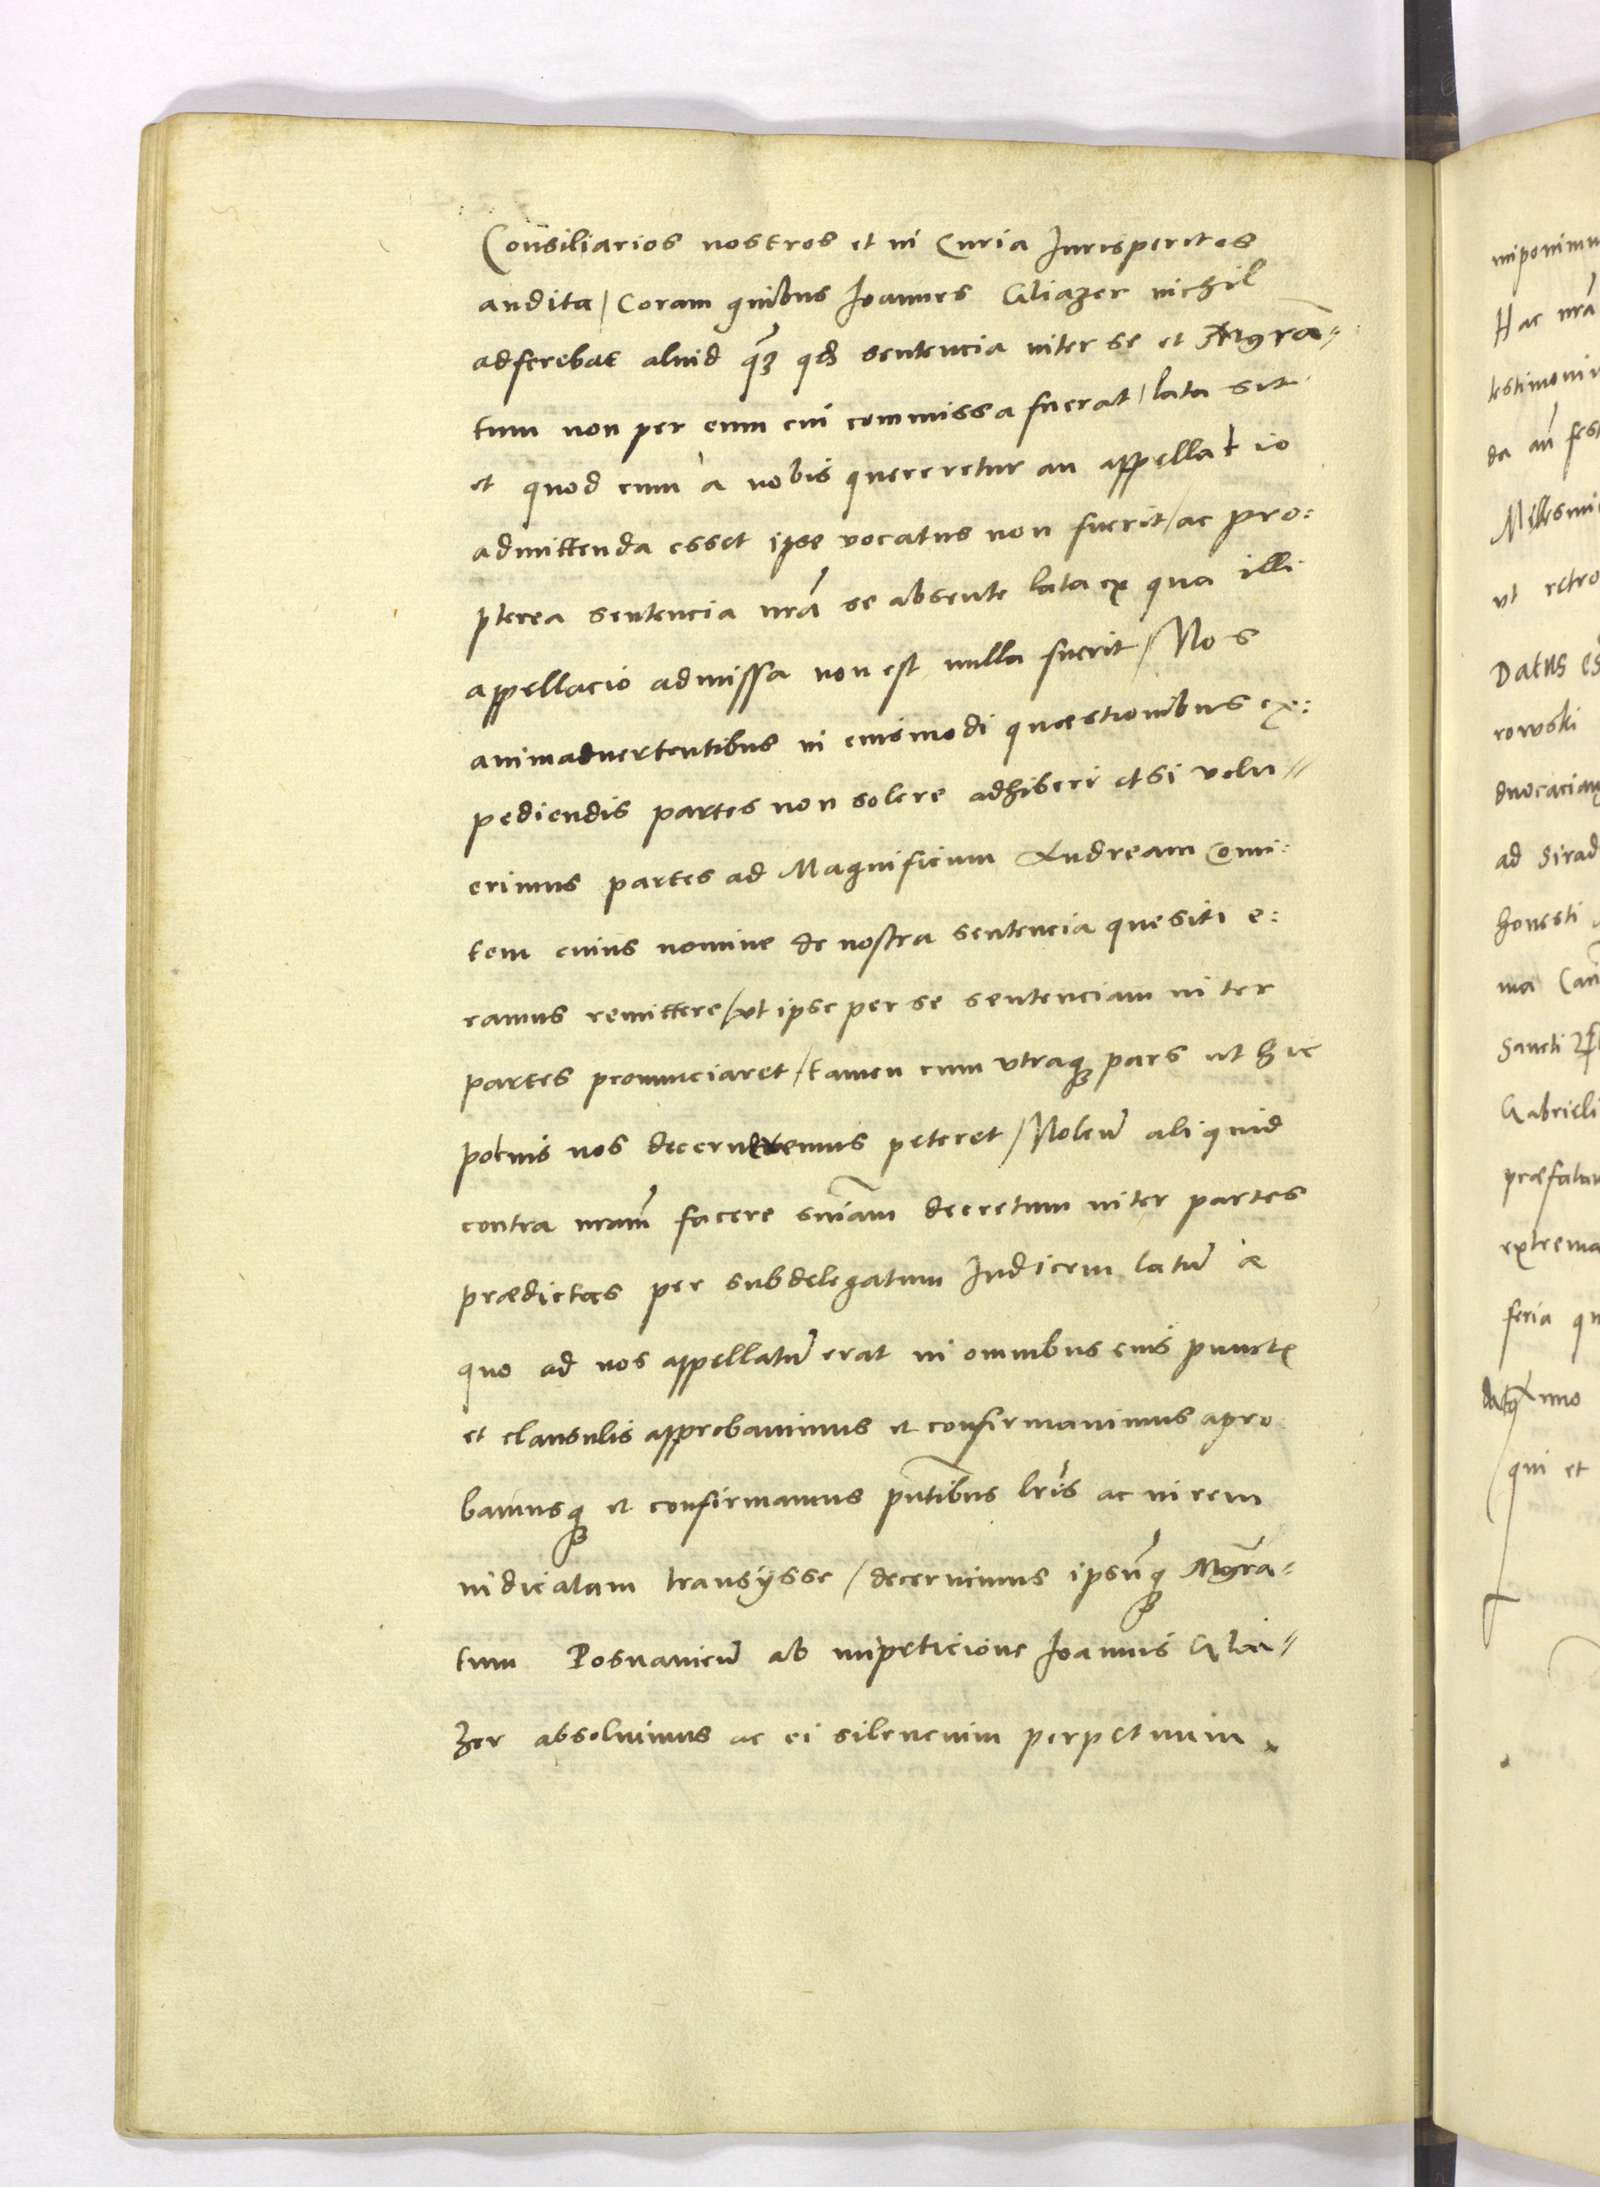 Consiliarios nostros et in Curia Iurisperitos
audita / Coram quibus Ioannes Gliazer nichil
adferebat aliud q̃ꝫ qđ sentencia inter se et Mgrã⸗
tum non per eum cui commissa fuerat / lata sit
et quod cum a nobis quereretur an appellatio
admittenda esset ipse vocatus non fuerit / ac pro:
pterea sentencia nrã se absente lata ex qua illi
appellacio admissa non est nulla fuerit / Nos
animaduertentibus in euismodi quæstionibus ex:
pediendis partes non solere adhiberi etsi volu⸗
erimus partes ad Magnificum Andream Comi:
tem cuius nomine de nostra sentencia quesiti e:
ramus remittere / vt ipse per se sentenciam inter
partes pronunciaret / tamen cum vtraqꝫ pars ut hic
potius nos decerneremus peteret / Noleñ aliquid
contra nram̃ facere snĩam decretum inter partes
prædictas per subdelegatum Iudicem latũ a
quo ad nos appellatũ erat in omnibus eius punctꝭ
et clausulis approbauimus et confirmauimus apro
bamusqꝫ et confirmamus pñtibus lrĩs ac in rem
iudicatam transijsse / decernimus ipsũqꝫ Mgrã⸗
tum Posnanieñ ab impeticione Ioannis Glia⸗
zer absoluimus ac ei silencium perpetuum
imponimu
Hac nrã
testimoni
da añ fest
Millesimi
vt retro
Datus es
rowski
duocacian
ad Sirad
honesti
ma Cañ
Sancti
Gabrieli
præfatu
extrema
feria qu
datqꝫ Anno
qui et